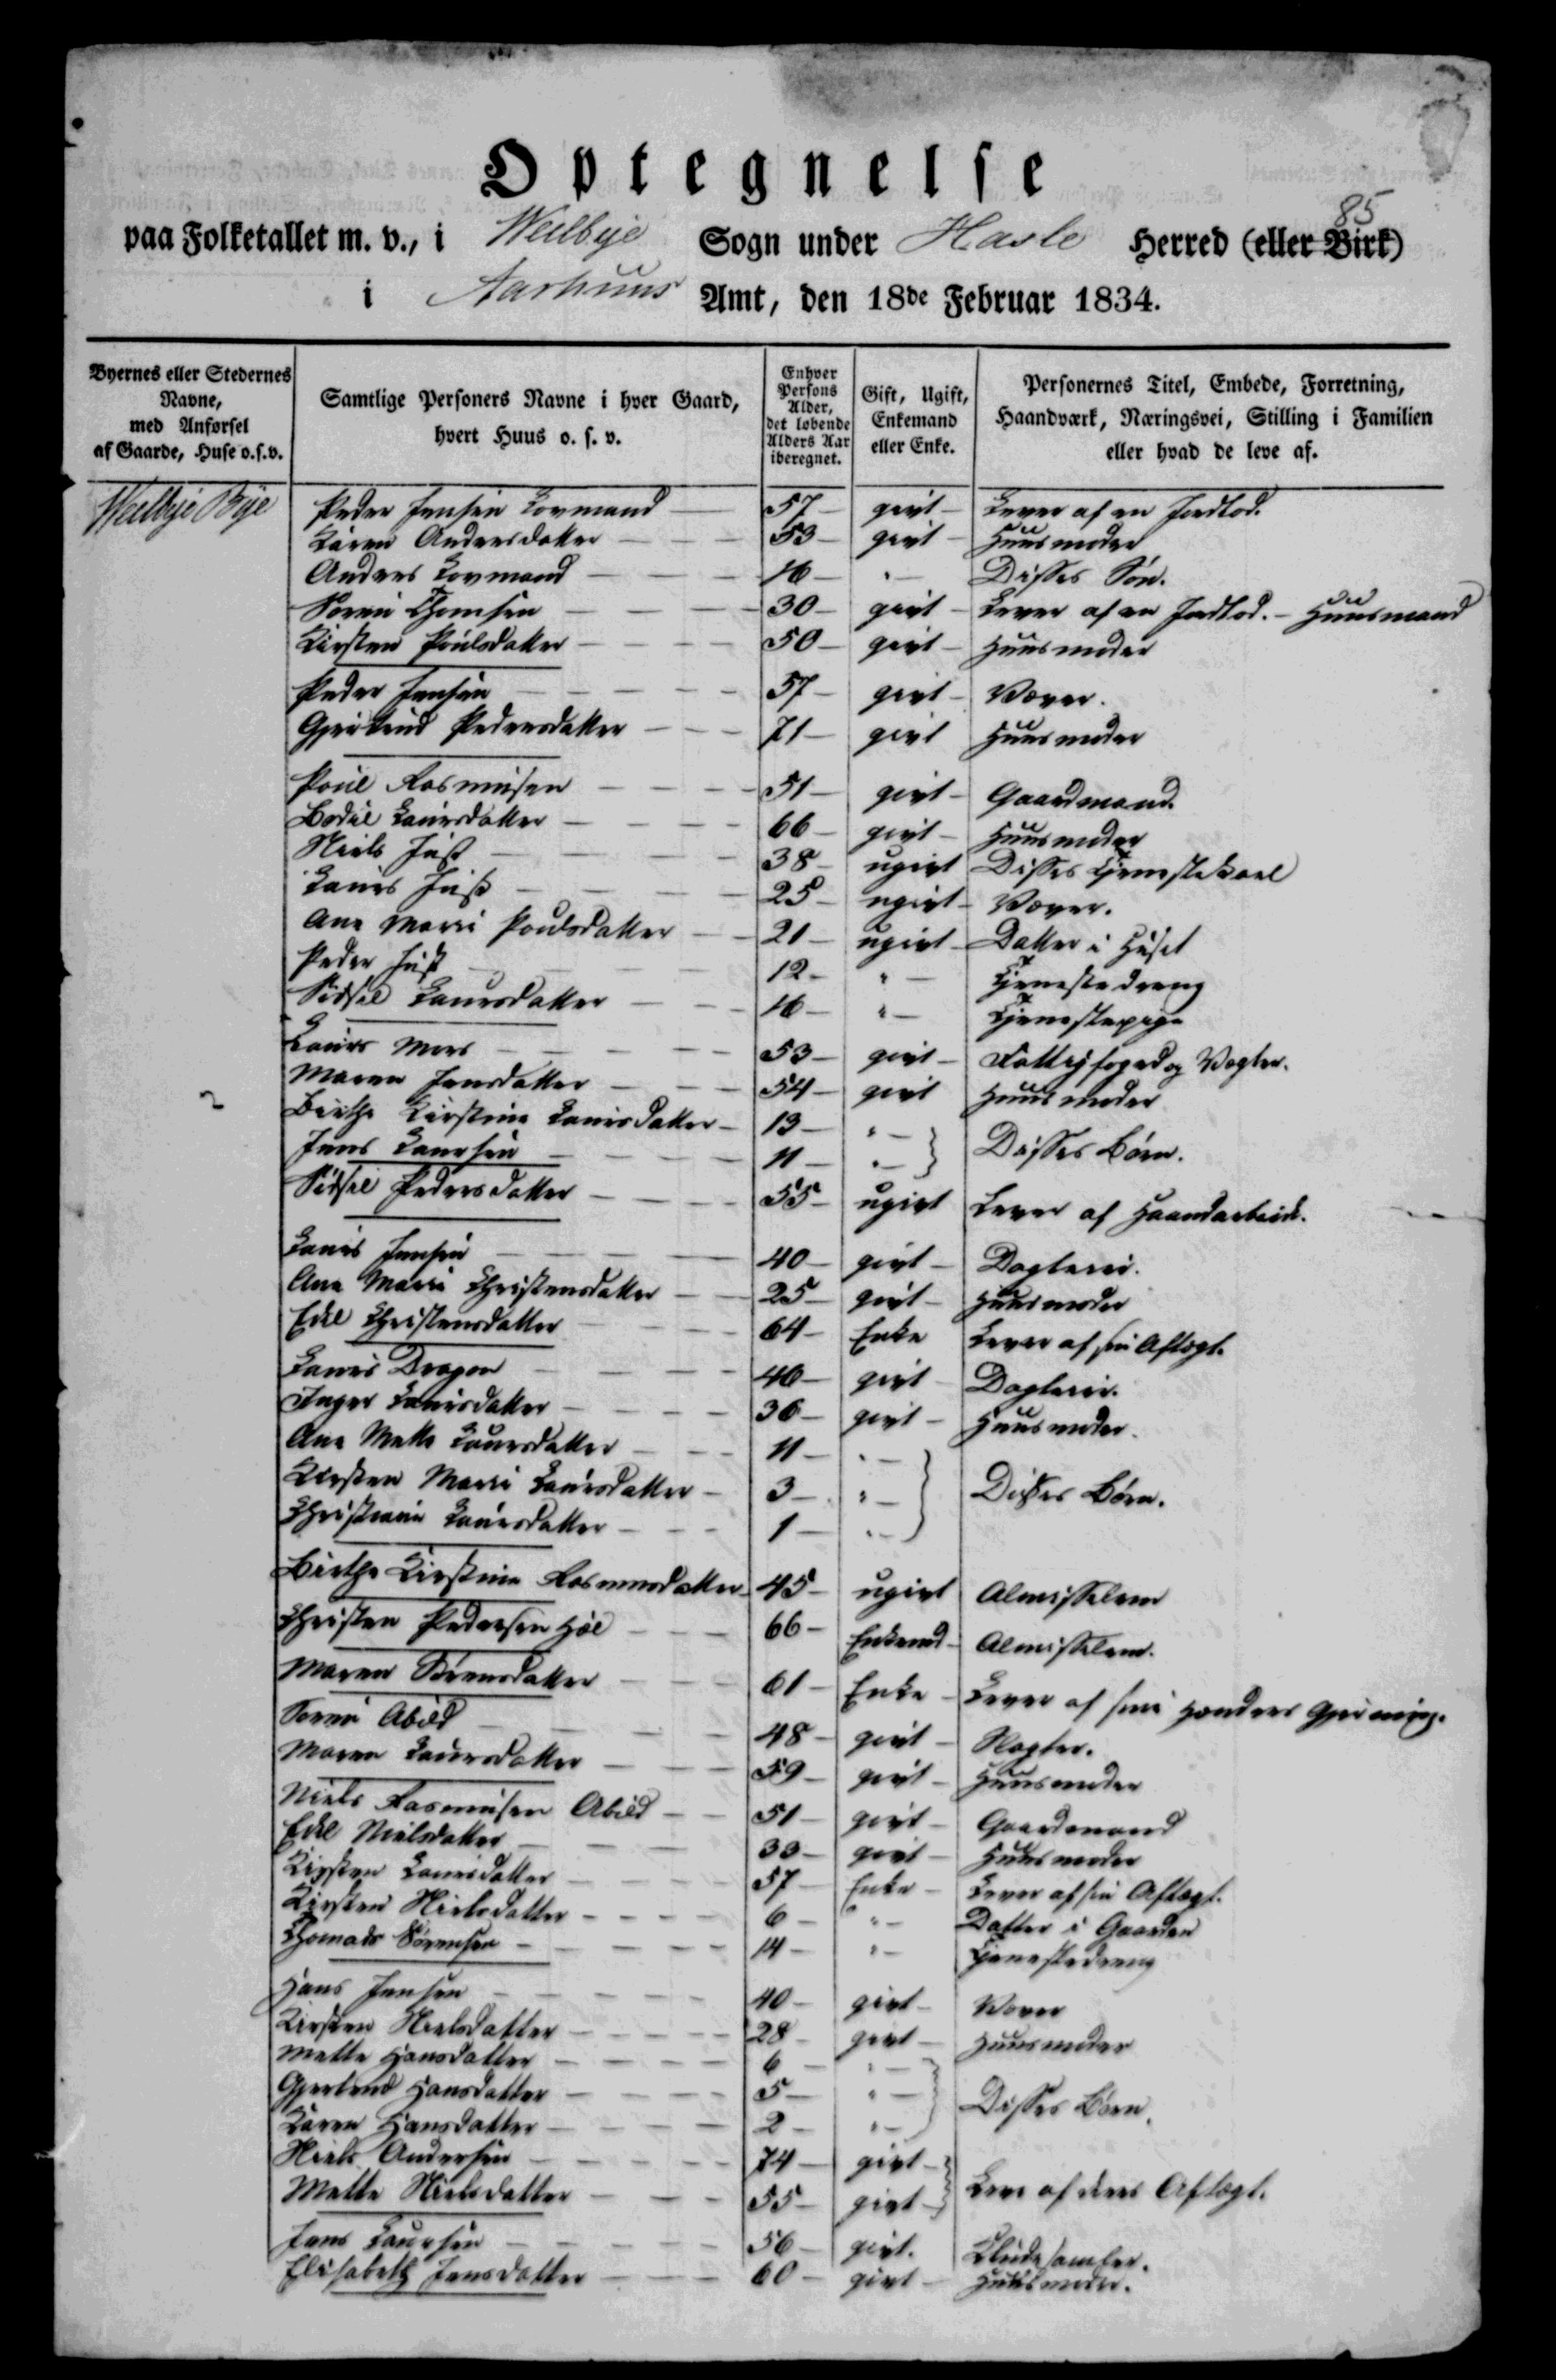 Optegnelse
85
paa Folketallet m. v., i Weilbye Sogn under Hasle Herred (eller Birk)
i Aarhuus Amt, den 18de Februar 1834.
Byernes eller Stedernes Navne, med Anførsel af Gaarde, Huse o.s.v.
Samtlige Personers Navne i hver Gaard, hvert Huus o. s. v.
Enhver Persons Alder, det løbende Alders Aar iberegnet.
Gift, Ugift, Enkemand eller Enke.
Personernes Titel, Embede, Forretning, Haandværk, Næringsvei, Stilling i Familien eller hvad de leve af.
Weilbye Bye Peder Jensen Lovmand — 57 — givt — Lever af en Jordlod.
Karen Andersdatter — 53 — givt — Huusmoder
Anders Lovmand — 16 — " — Disses Søn.
Søren Thomsen — 30 — givt — Lever af en Jordlod. — Huusmand
Kirsten Poulsdatter — 50 — givt — Huusmoder
Peder Jensen — 57 — givt — Væver.
Gjertrud Pedersdatter — 71 — givt Huusmoder
Poul Rasmusen — 51 — givt — Gaardmand.
Bodil Laursdatter — 66 — givt — Huusmoder
Niels Just — 38 — ugivt Disses Tjenestekarl
Laurs Just — 25 — ugivt — Væver.
Ane Marie Poulsdatter — 21 — ugivt — Datter i Huset
Peder Just — 12 — " — Tjenestedreng
Sidsel Laursdatter — 16 — " — Tjenestepige
Laurs Mors — 53 — givt — Fattigfoged og Vægter.
Maren Jensdatter — 54 — givt Huusmoder
Birthe Kirstine Laursdatter — 13 — " —
Jens Laursen — 11 — " — Disses Børn.
Sidsel Pedersdatter — 55 — ugivt Lever af Haandarbeid.
Laurs Jensen — 40 — givt — Dagleier.
Ane Marie Christensdatter — 25 — givt — Huusmoder
Edel Christensdatter — 64 — Enke Lever af sin Aftægt.
Laurs Dragon — 46 — givt — Dagleier.
Inger Laursdatter — 36 — givt — Huusmoder.
Ane Mette Laursdatter — 11 — " —
Kirsten Marie Laursdatter — 3 — " — Disses Børn.
Christiane Laursdatter — 1 — " —
Birthe Kirstine Rasmusdatter — 45 — ugivt Almisselem
Christen Pedersen — 66 — Enkemd — Almisselem.
Maren Sørensdatter — 61 — Enke — Lever af sine Hænders Gjerning.
Søren Abild — 48 — givt — Slagter.
Maren Laursdatter — 59 — givt — Huusmoder
Niels Rasmusen Abild — 51 — givt — Gaardmand
Edel Nielsdatter — 33 — givt — Huusmoder
Kirsten Laursdatter — 57 — Enke — Lever af sin Aftægt.
Kirsten Nielsdatter — 6 — " — Datter i Gaarden
Thomads Sørensen — 14 — " — Tjenestedreng
Hans Jensen — 40 — givt — Væver
Kirsten Nielsdatter — 28 — givt — Huusmoder
Mette Hansdatter — 6 — " —
Gjertrud Hansdatter — 5 — " — Disses Børn.
Karen Hansdatter — 2 — " —
Niels Andersen — 74 — givt —
Mette Nielsdatter — 55 — givt — Leve af deres Aftægt.
Jens Laursen — 56 — givt. Kludesamler.
Elisabeth Jensdatter — 60 — givt — Huusmoder.